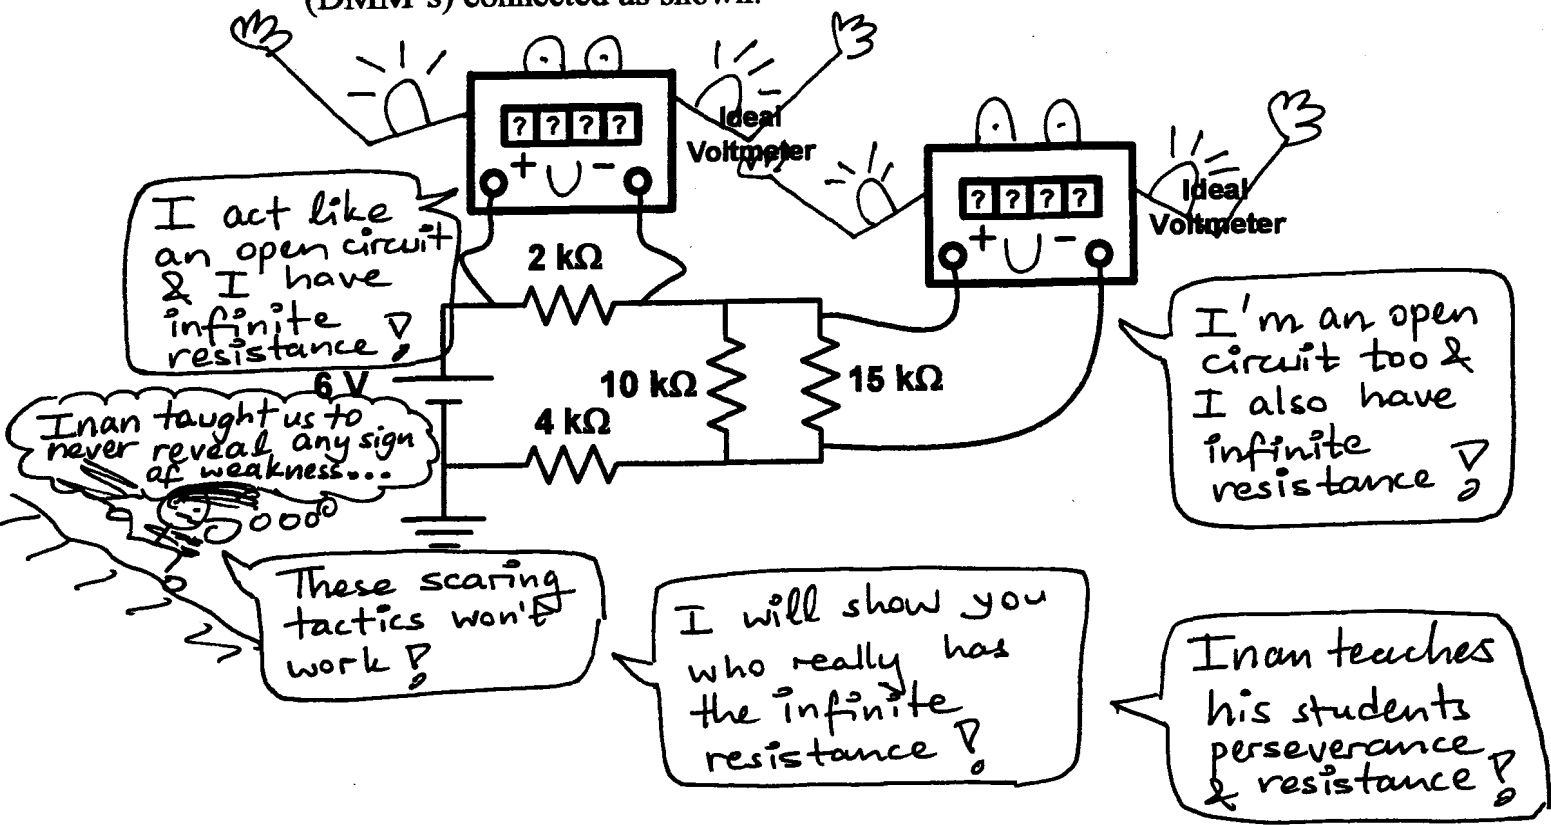 (DMM's) connected as shown.
? ? ? ?
+ -
Ideal
Voltmeter
? ? ? ?
+ -
Ideal
Voltmeter
I act like
an open circuit
& I have
infinite
resistance!
2 kΩ
6 V
10 kΩ
15 kΩ
4 kΩ
I'm an open
circuit too &
I also have
infinite
resistance!
Inan taught us to
never reveal any sign
of weakness...
These scaring
tactics won't
work!
I will show you
who really has
the infinite
resistance!
Inan teaches
his students
perseverance
& resistance!